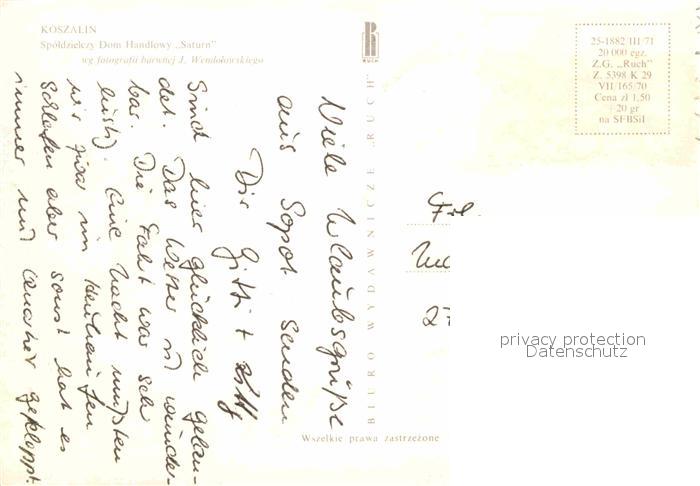 KOSZALIN
Spółdzielczy Dom Handlowy „Saturn"
wg fotografii barwnej J. Wendołowskiego
RUCH
BIURO WYDAWNICZE „RUCH"
25-1882/III/71
20 000 egz.
Z.G. „Ruch"
Z. 5398 K 29
VII 165/70
Cena zł 1,50
+ 20 gr
na SFBSiI
Viele Urlaubsgrüße
aus Sopot senden
Dir Gitti +
Sind hier glücklich gelan-
det. Das Wetter ist wunder-
bar. Die Fahrt war sehr
lustig. Eine Nacht mußten
wir im Heuhaufen
schlafen aber sonst hat es
immer mit Quartier geklappt.
Wszelkie prawa zastrzeżone
privacy protection
Datenschutz